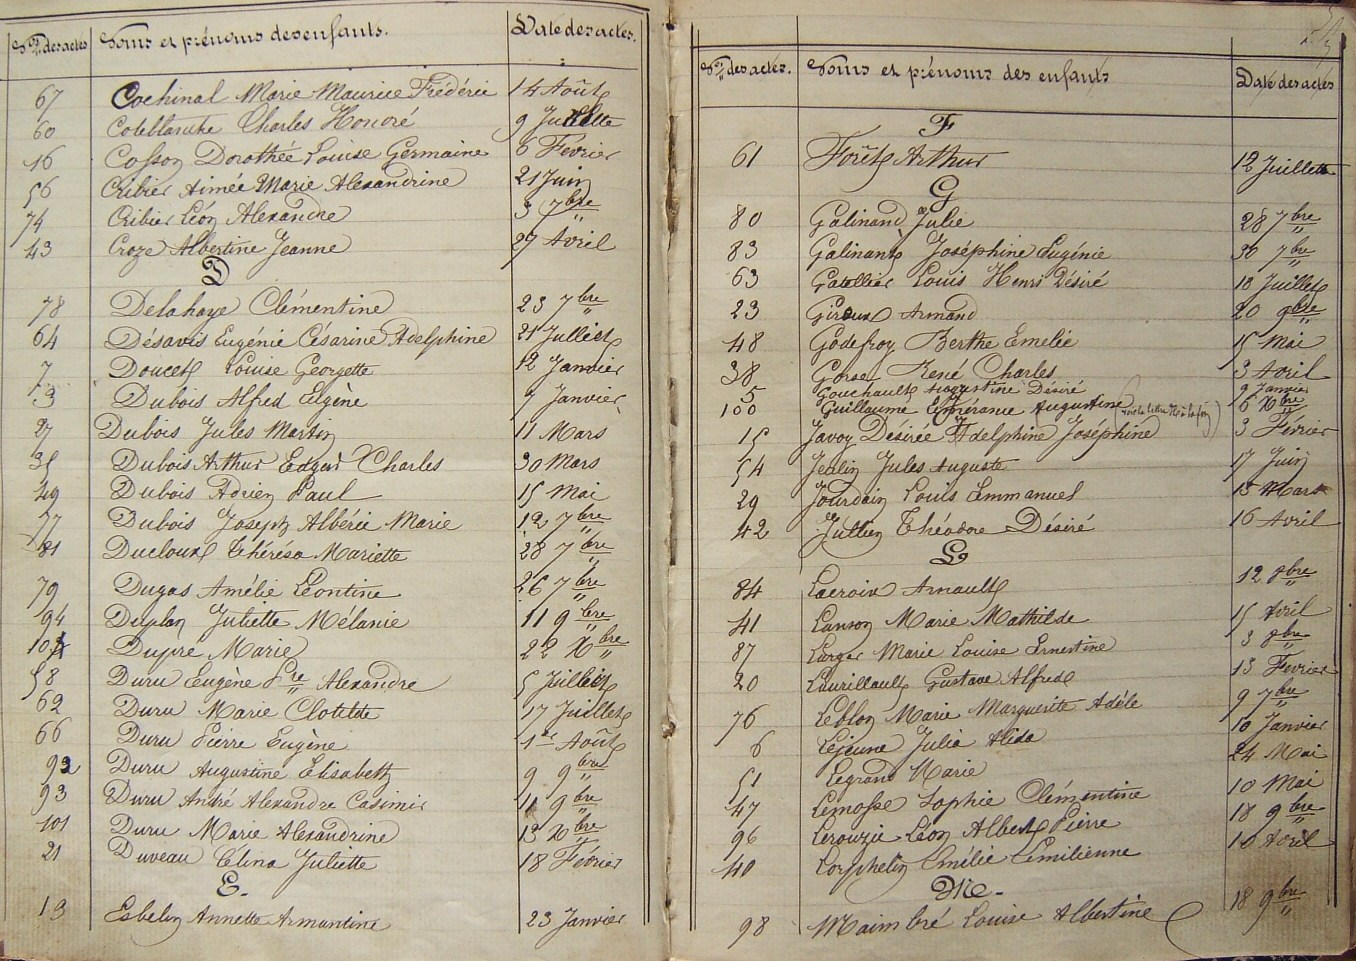 Nos des actes Noms et prénoms des enfants. Date des actes.
67 Cochinal Marie Maurice Frédéric 14 Août
60 Coteblanche Charles Honoré 9 Juillette
16 Cosson Dorothée Louise Germaine 6 Fevrier
56 Cribier Aimée Marie Alexandrine 21 Juin
74 Cribier Léon Alexandre 3 7bre
43 Croze Albertine Jeanne 27 Avril
D
78 Delahaye Clémentine 23 7bre
64 Désavis Eugénie Césarine Adelphine 21 Juillet
7 Doucet Louise Georgette 12 Janvier
3 Dubois Alfred Eugène 7 Janvier
27 Dubois Jules Martin 11 Mars
35 Dubois Arthur Edgar Charles 30 Mars
49 Dubois Adrien Paul 15 Mai
77 Dubois Joseph Albéric Marie 12 7bre
81 Ducloux Thérésa Mariette 28 7bre
79 Dugas Amélie Léontine 26 7bre
94 Duplan Juliette Mélanie 11 9bre
Dupre Marie 22 Xbre
58 Duru Eugène Pre Alexandre 5 Juillet
62 Duru Marie Clotilde 17 Juillet
66 Duru Pierre Eugène 1er Août
92 Duru Augustine Elisabeth 9 9bre
93 Duru André Alexandre Casimir 11 9bre
101 Duru Marie Alexandrine 13 Xbre
21 Duveau Célina Juliette 18 Février
E.
13 Esbelin Annette Armantine 23 Janvier
Nos des actes. Noms et prénoms des enfants Date des actes
F
61 Forêt Arthur 12 Juillette
G
80 Galinand Julie 28 7bre
83 Galinand Joséphine Eugénie 30 7bre
63 Gatellier Louis Henri Désiré 18 Juillet
23 Giroux Armand 20
48 Godefroy Berthe Emélie 15 Mai
38 Gorse René Charles 3 Avril
5 Gouchault Augustine Désiré 9 Janvier
100 Guillaume Emérance Augustine 6 Xbre
15 Javoy Désirée Adelphine Joséphine 3 Fevrier
54 Jeulin Jules Auguste 17 Juin
29 Jourdain Louis Emmanuel 15 Mars
42 Jullien Théodore Désiré 16 Avril
L
84 Lacroix Arnault 12 8bre
41 Lanson Marie Mathilde 15 Avril
87 Marie Louise Ernestine 3 8bre
20 Laurillault Gustave Alfred 13 Fevrier
76 Leblon Marie Marguerite Adéle 9 7bre
6 Lejeune Julia Alida 10 Janvier
51 Legrand Marie 24 Mai
47 Lemosse Sophie Clémentine 10 Mai
96 Lerouzic Léon Albert Pierre 18 9bre
40 Lorphelin Emélie Emilienne 10 Avril
M.
98 Maimbré Louise Albertine 18 9bre